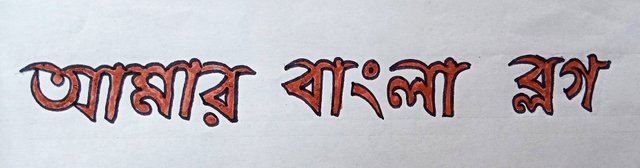 আমার বাংলা ব্লগ